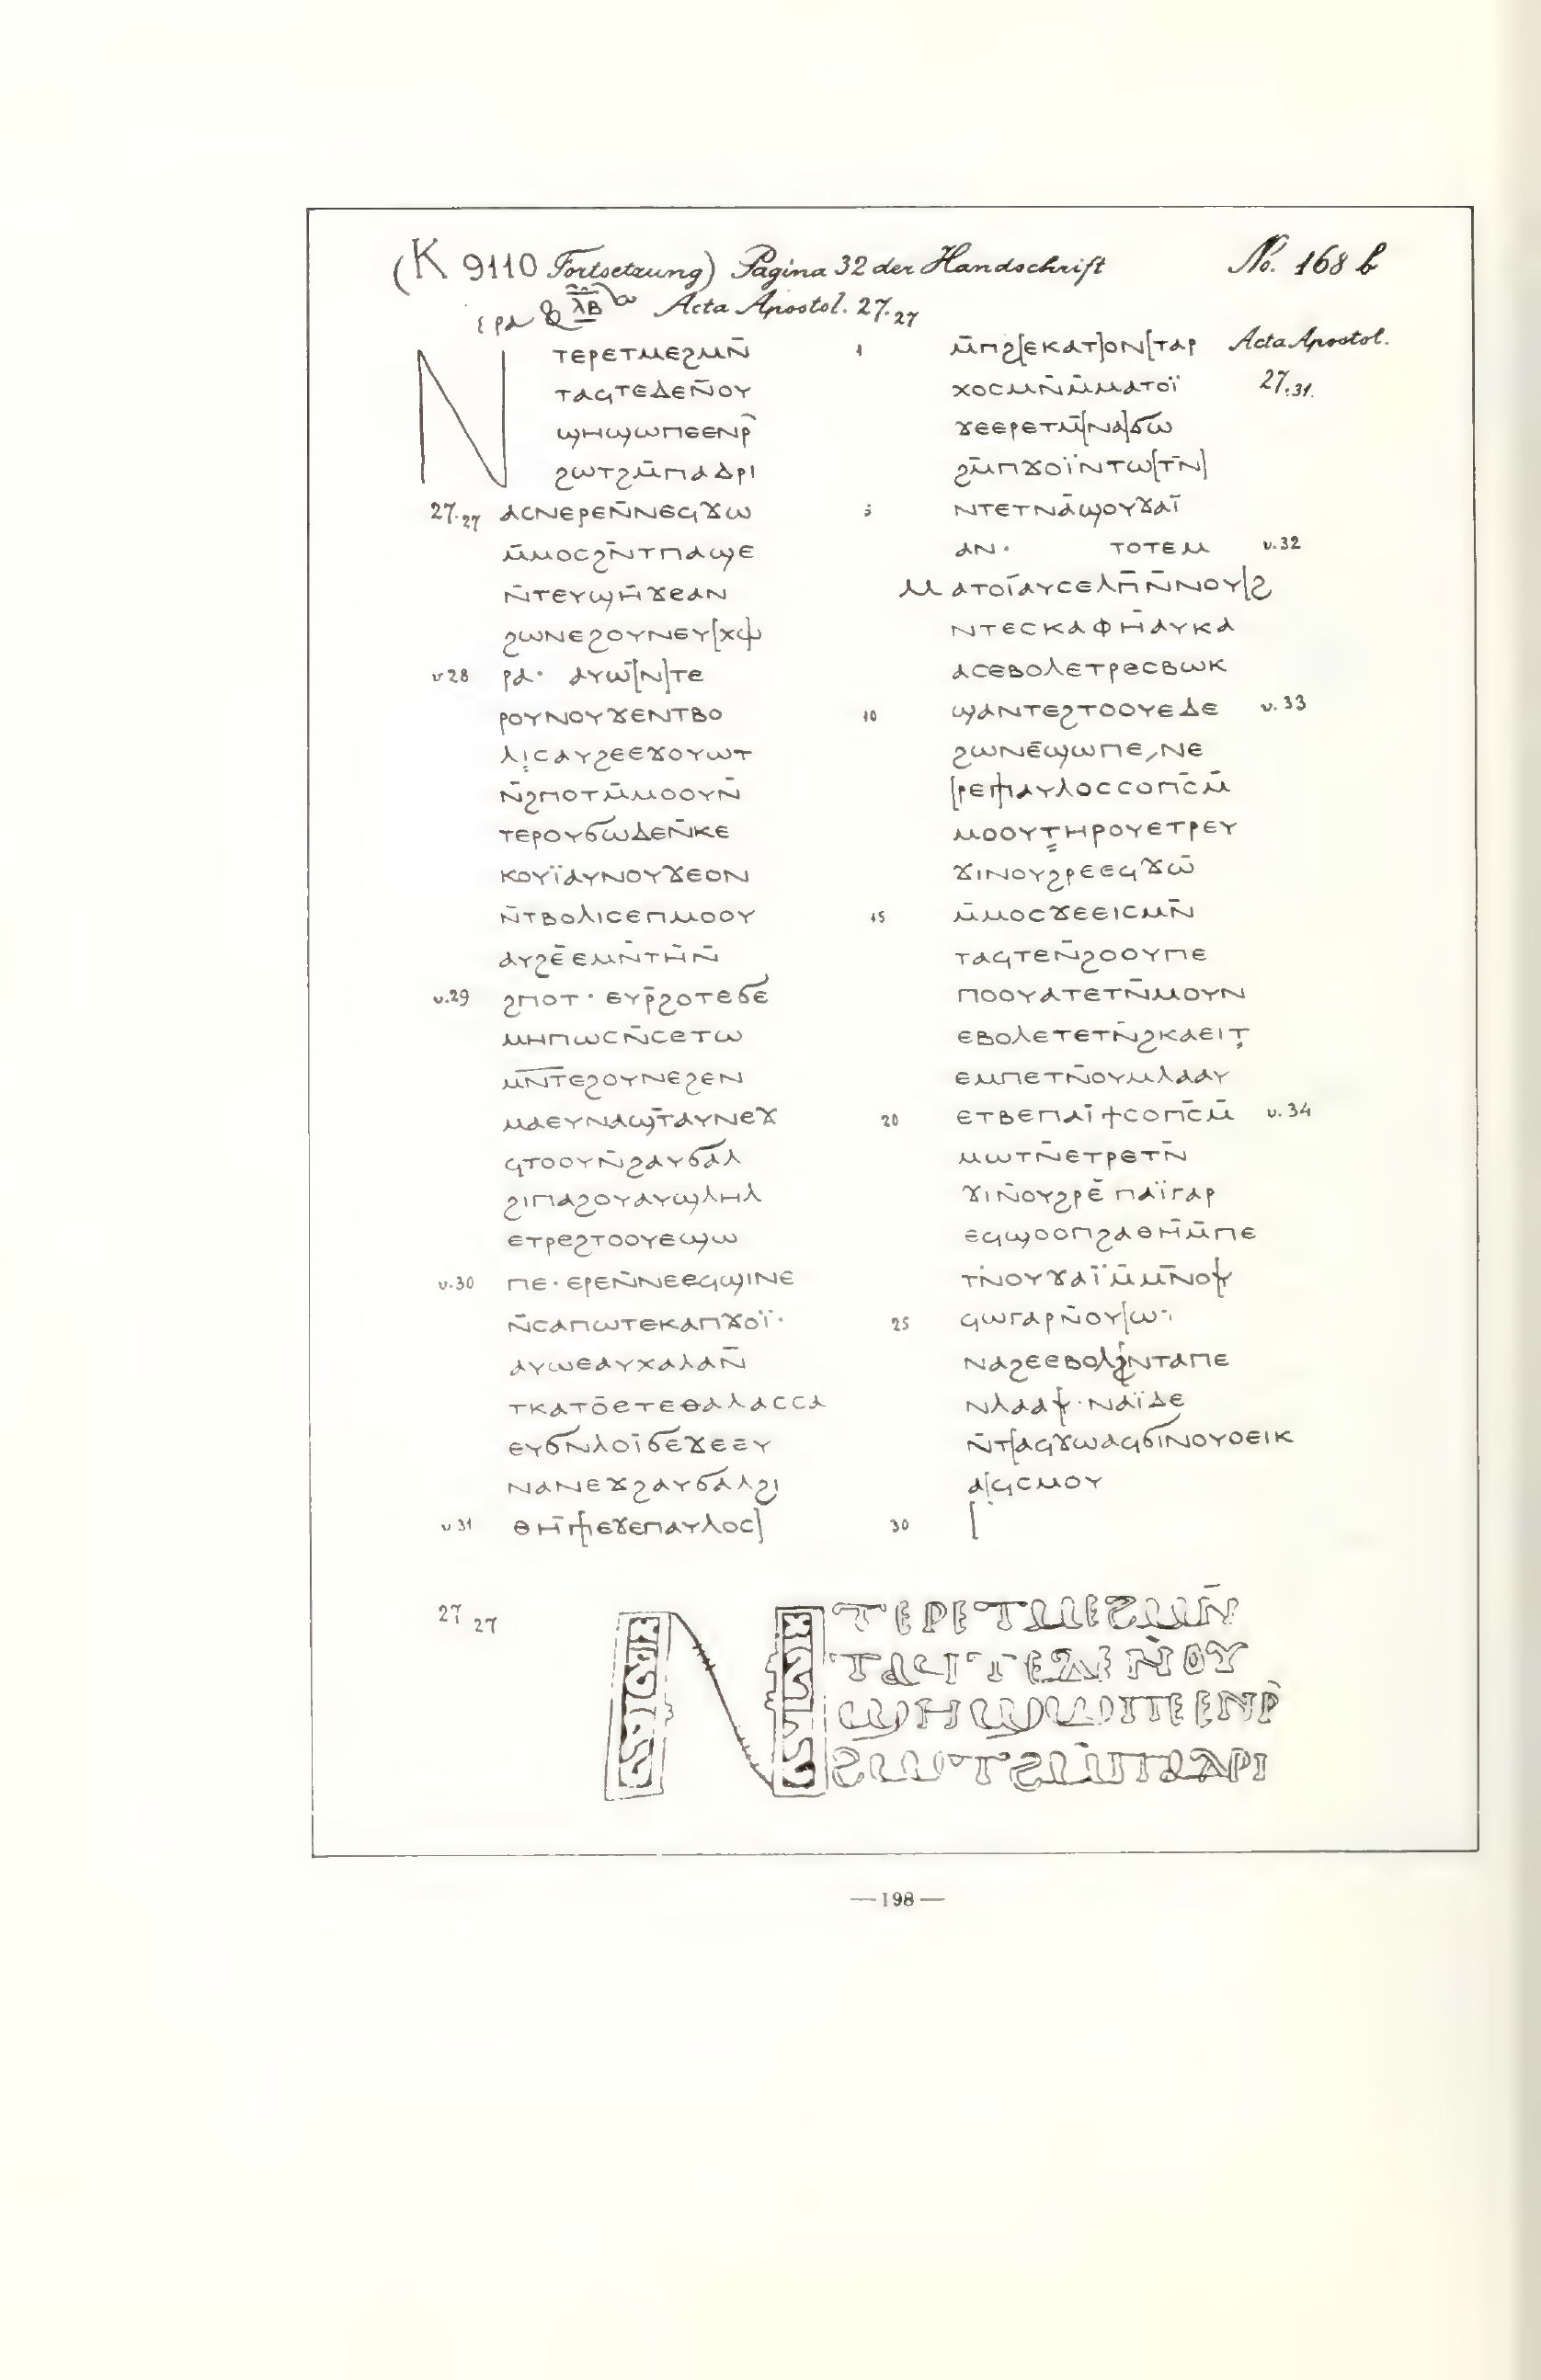 (K 9110 Fortsetzung) Pagina 32 der Handschrift No. 168 b
ⲗⲃ Acta Apostol. 27.27
N ⲧⲉⲣⲉⲧⲙⲉϩⲙⲛ̄
ⲧⲁϥⲧⲉⲇⲉⲛ̄ⲟⲩ
ϣⲏϣⲱⲡⲉⲉⲛⲣ̄
ϩⲱⲧϩⲙ̄ⲡⲁⲇⲣⲓ
27.27 ⲁⲥⲛⲉⲣⲉⲛ̄ⲛⲉϥϫⲱ
ⲙ̄ⲙⲟⲥϩⲛ̄ⲧⲡⲁϣⲉ
ⲛ̄ⲧⲉⲩϣⲏ̄ϫⲉⲁⲛ
ϩⲱⲛⲉϩⲟⲩⲛⲉⲩ[ⲭⲱ]
v 28 ⲣⲁ· ⲁⲩⲱ̄[ⲛ]ⲧⲉ
ⲣⲟⲩⲛⲟⲩϫⲉⲛⲧⲃⲟ
ⲗⲓⲥⲁⲩϩⲉⲉϫⲟⲩⲱⲧ
ⲛ̄ϩⲡⲟⲧⲙ̄ⲙⲟⲟⲩⲛ̄
ⲧⲉⲣⲟⲩϭⲱⲇⲉⲛ̄ⲕⲉ
ⲕⲟⲩⲓ̈ⲁⲩⲛⲟⲩϫⲉⲟⲛ
ⲛ̄ⲧⲃⲟⲗⲓⲥⲉⲡⲙⲟⲟⲩ
ⲁⲩϩⲉ̄ⲉⲙⲛ̄ⲧⲏ̄ⲛ̄
v.29 ϩⲡⲟⲧ· ⲉⲩⲣ̄ϩⲟⲧⲉϭⲉ̄
ⲙⲏⲡⲱⲥⲛ̄ⲥⲉⲧⲱ
ⲙ̄ⲛ̄ⲧⲉϩⲟⲩⲛⲉϩⲉⲛ
ⲙⲁⲉⲩⲛⲁϣⲧ̄ⲁⲩⲛⲉϫ
ϥⲧⲟⲟⲩⲛ̄ϩⲁⲩϭⲁⲗ
ϩⲓⲡⲁϩⲟⲩⲁⲩϣⲗⲏⲗ
ⲉⲧⲣⲉϩⲧⲟⲟⲩⲉϣⲱ
v.30 ⲡⲉ· ⲉⲣⲉⲛ̄ⲛⲉⲉϥϣⲓⲛⲉ
ⲛ̄ⲥⲁⲡⲱⲧⲉⲕⲁⲡϫⲟⲓ̈·
ⲁⲩⲱⲉⲁⲩⲭⲁⲗⲁⲛ̄
ⲧⲕⲁⲧⲟ̄ⲉⲧⲉⲑⲁⲗⲁⲥⲥⲁ
ⲉⲩϭⲛⲗⲟⲓ̄ϭⲉϫⲉⲉⲩ
ⲛⲁⲛⲉϫϩⲁⲩϭⲁⲗϩⲓ
v 31 ⲑⲏ̄[ⲡ]ⲉϫⲉⲡⲁⲩⲗⲟⲥ]
1 ⲙ̄ⲡϩ[ⲉⲕⲁⲧ]ⲟⲛ[ⲧⲁⲣ Acta Apostol.
ⲭⲟⲥⲙⲛ̄ⲙ̄ⲙⲁⲧⲟⲓ̈ 27.31.
ϫⲉⲉⲣⲉⲧⲙ̄[ⲛⲁ]ϭⲱ
ϩⲙ̄ⲡϫⲟⲓ̈ⲛⲧⲱ[ⲧⲛ̄]
5 ⲛⲧⲉⲧⲛⲁ̄ϣⲟⲩϫⲁⲓ̈
ⲁⲛ· ⲧⲟⲧⲉⲙ v.32
ⲙⲁⲧⲟⲓ̈ⲁⲩⲥⲉⲗⲡ̄ⲛ̄ⲛⲟⲩ[ϩ
ⲛⲧⲉⲥⲕⲁⲫⲏ̄ⲁⲩⲕⲁ
ⲁⲥⲉⲃⲟⲗⲉⲧⲣⲉⲥⲃⲱⲕ
10 ϣⲁⲛⲧⲉϩⲧⲟⲟⲩⲉⲇⲉ v.33
ϩⲱⲛⲉ̄ϣⲱⲡⲉ,ⲛⲉ
[ⲣⲉ]ⲡⲁⲩⲗⲟⲥⲥⲟⲡ̄ⲥ̄ⲙ̄
ⲙⲟⲟⲩⲧⲏⲣⲟⲩⲉⲧⲣⲉⲩ
ϫⲓⲛⲟⲩϩⲣⲉⲉϥϫⲱ̄
15 ⲙ̄ⲙⲟⲥϫⲉⲉⲓⲥⲙⲛ̄
ⲧⲁϥⲧⲉⲛ̄ϩⲟⲟⲩⲡⲉ
ⲡⲟⲟⲩⲁⲧⲉⲧⲛ̄ⲙⲟⲩⲛ
ⲉⲃⲟⲗⲉⲧⲉⲧⲛ̄ϩⲕⲁⲉⲓⲧ̣
ⲉⲙⲡⲉⲧⲛ̄ⲟⲩⲙⲗⲁⲁⲩ
20 ⲉⲧⲃⲉⲡⲁⲓ̈ϯⲥⲟⲡ̄ⲥ̄ⲙ̄ v.34
ⲙⲱⲧⲛ̄ⲉⲧⲣⲉⲧⲛ̄
ϫⲓⲛ̄ⲟⲩϩⲣⲉ̄ ⲡⲁⲓ̈ⲅⲁⲣ
ⲉϥϣⲟⲟⲡϩⲁⲑⲏ̄ⲙ̄ⲡⲉ
ⲧⲛ̄ⲟⲩϫⲁⲓ̈ⲙ̄ⲙⲛ̄ⲟ[ⲩ
25 ϥⲱⲅⲁⲣⲛ̄ⲟⲩ[ⲱ
ⲛⲁϩⲉⲉⲃⲟⲗϩ̣ⲛⲧⲁⲡⲉ
ⲛⲗⲁⲁ[ⲩ·ⲛⲁⲓ̈ⲇⲉ
ⲛ̄ⲧ[ⲁϥϫⲱⲁϥϭⲓⲛⲟⲩⲟⲉⲓⲕ
ⲁ[ϥⲥⲙⲟⲩ
30 [
27 27 N ⲧⲉⲣⲉⲧⲙⲉϩⲙⲛ̄
ⲧⲁϥⲧⲉⲇⲉⲛ̄ⲟⲩ
ϣⲏϣⲱⲡⲉⲉⲛⲣ̄
ϩⲱⲧϩⲙ̄ⲡⲁⲇⲣⲓ
—198—